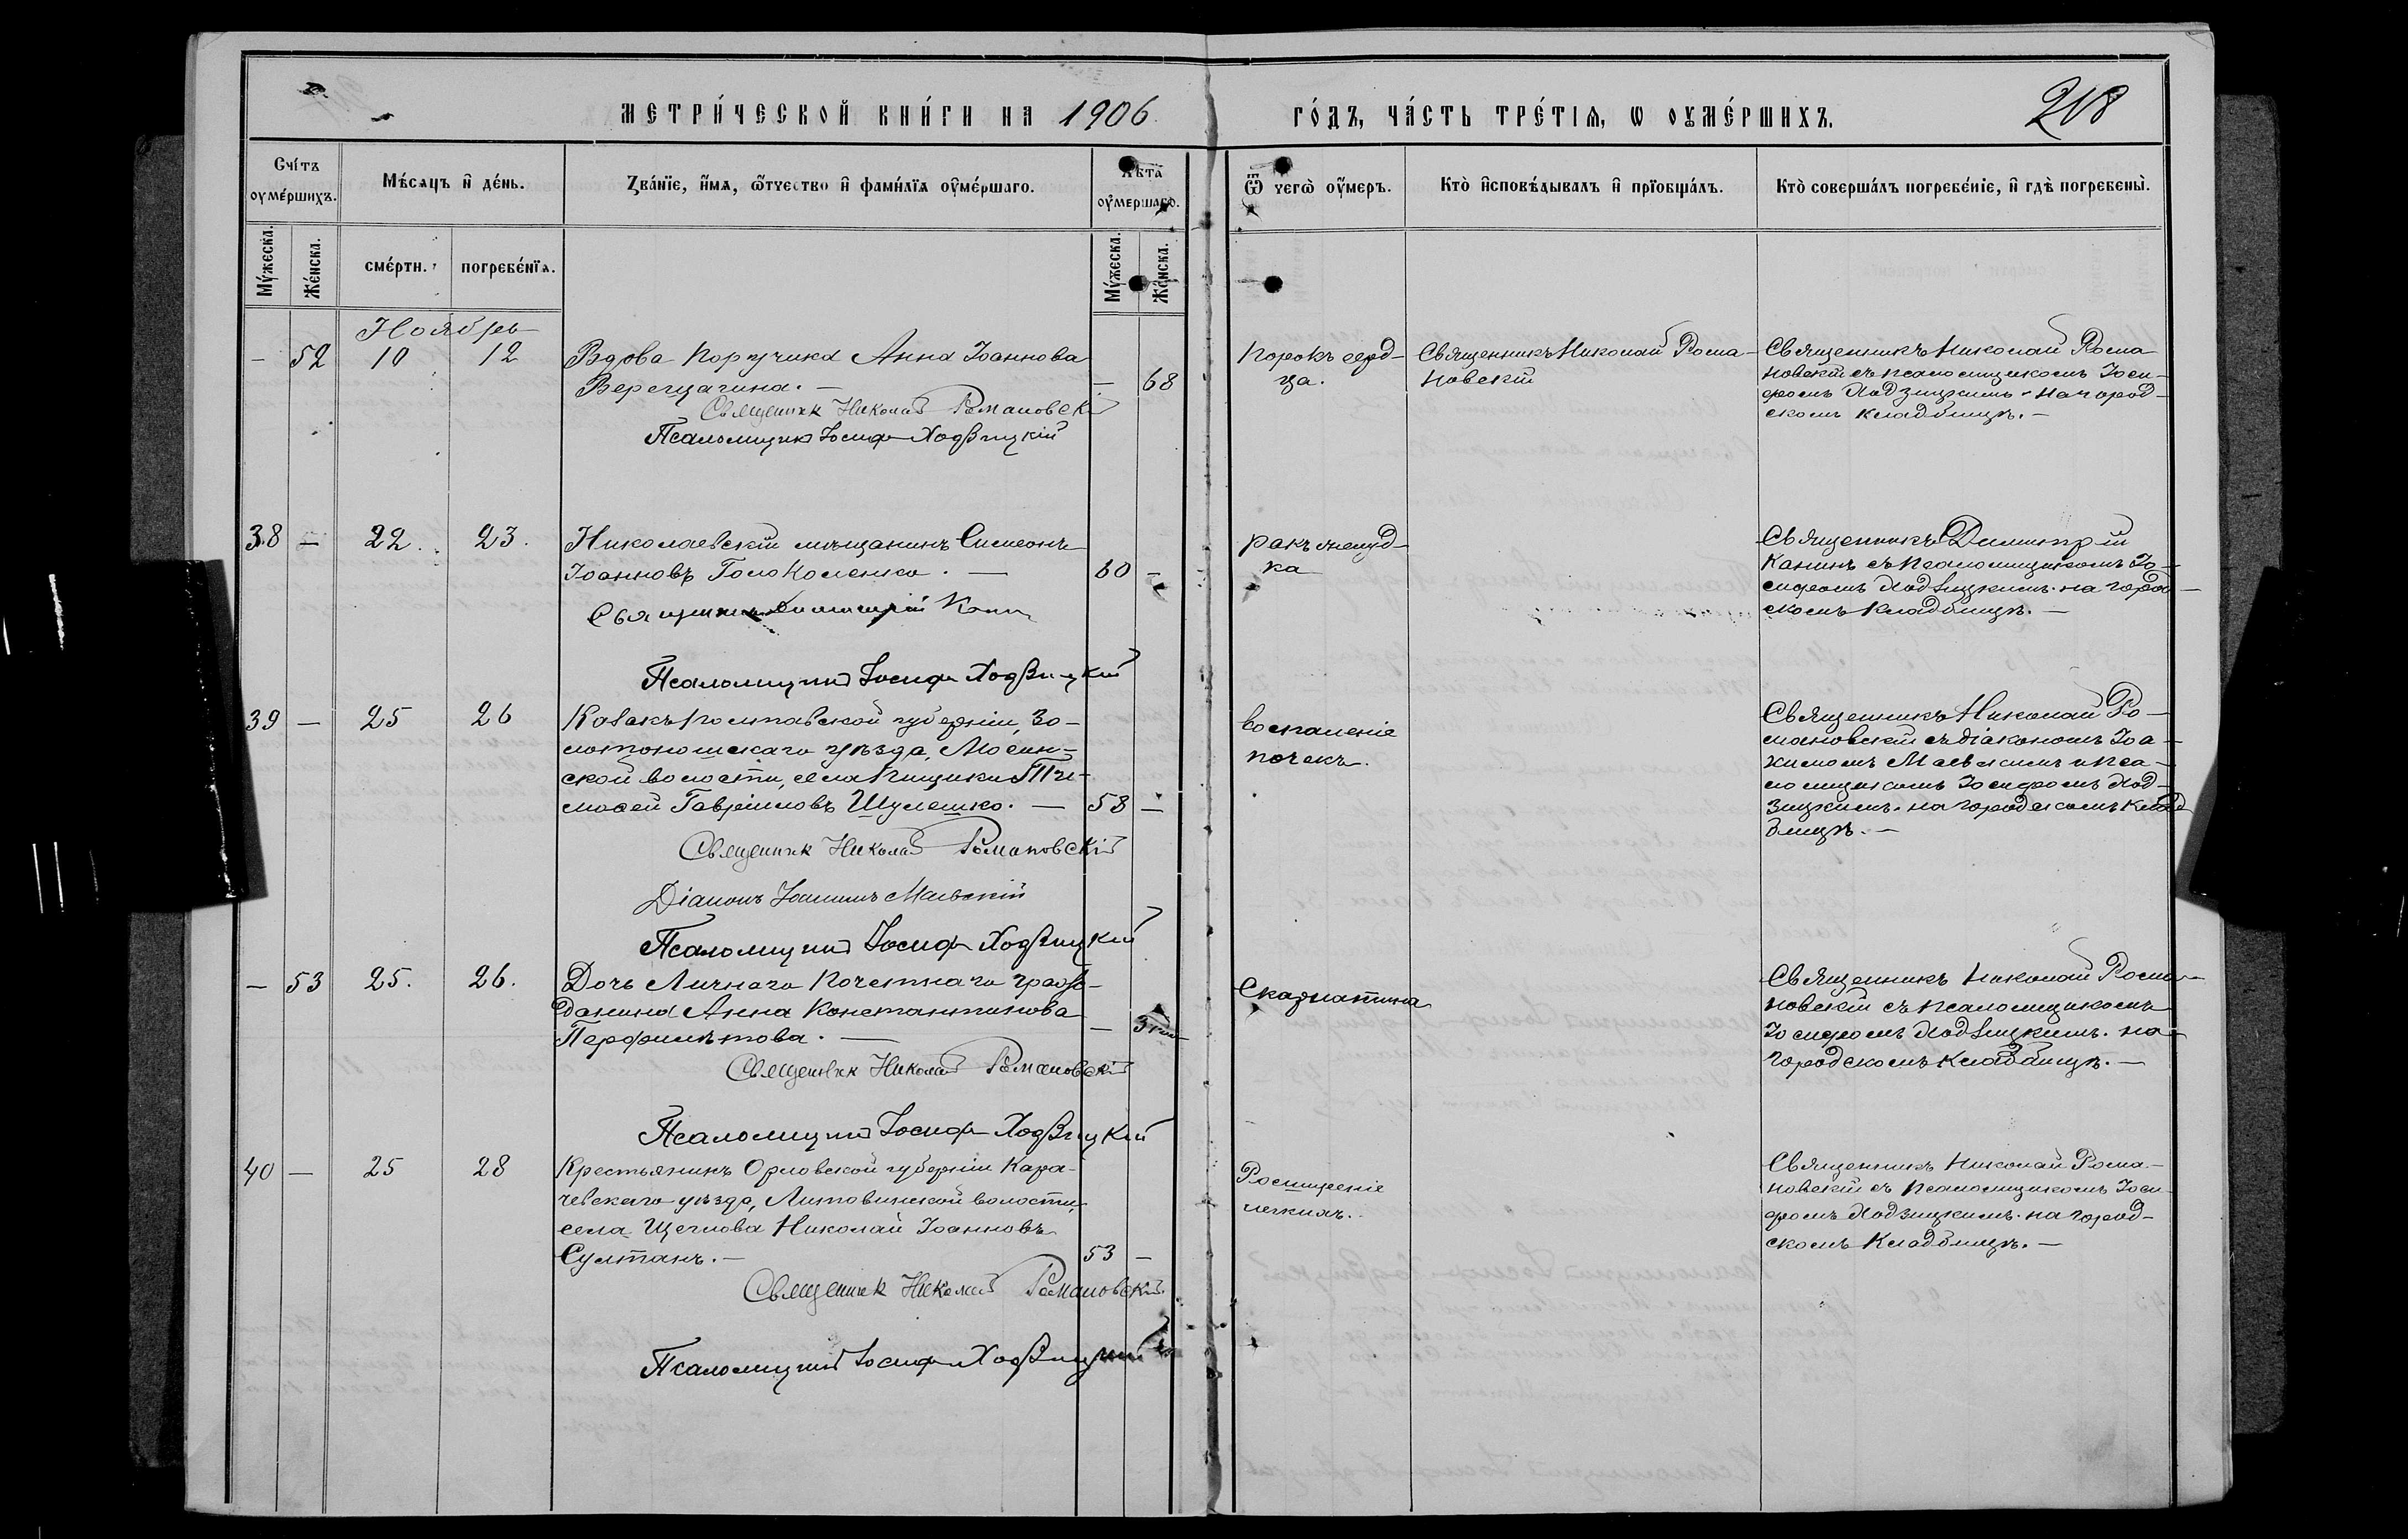 МЕТРИ́ЧЕСКОЙ КНИ́ГИ НА 1906
ГО́ДЪ, ЧА́СТЬ ТРЕ́ТІѦ, Ѡ ОУМЕ́РШИХЪ.
218
Сче́тъ оуме́ршихъ.
Мѣ́сяцъ и҆ де́нь.
Зва́нїе, и҆́мѧ, ѻ҆́тчество и҆ фами́лїѧ оуме́ршаго.
Лѣта̀ оуме́ршаго.
Ѿ чегѡ̀ оу҆́меръ.
Кто̀ и҆сповѣ́дывалъ и҆ прїобща́лъ.
Кто̀ соверша́лъ погребе́нїе, и҆ гдѣ̀ погребены̀.
Му́жеска.
Же́нска.
сме́рти.
погребе́нїѧ.
Му́жеска.
Же́нска.
Ноябрь
— 52 10 12
Вдова поручика Анна Іоаннова
Верещагина. — — 68
Священник Николай Романовскій
Псаломщикъ Іосифъ Ходзицкій
Порокъ серд-
ца.
Священникъ Николай Рома-
новскій
Священникъ Николай Рома
новскій съ псаломщикомъ Іоси-
фомъ Ходзицкимъ на город-
скомъ кладбищѣ. —
38 — 22. 23.
Николаевскій мѣщанинъ Симеонъ
Іоанновъ Голоколенко. — 60 —
Священникъ Димитрій Канин
Псаломщикъ Іосифъ Ходзицкій
ракъ желуд-
ка
Священникъ Димитрій
Канинъ съ псаломщикомъ Іо-
сифомъ Ходзицкимъ. на город-
скомъ кладбищѣ. —
39 — 25 26
Козакъ Полтавской губерніи, Зо-
лотоношскаго уѣзда, Моеин-
ской волости, села Пищики Ти-
моѳей Гавріиловъ Шулешко. — 58 —
Священник Николай Романовскій
Діаконъ Іоакимъ Маевскій
Псаломщикъ Іосифъ Ходзицкій
воспаленіе
почекъ.
Священникъ Николай Ро-
мановскій съ діакономъ Іоа-
кимомъ Маевскимъ и пса-
ломщикомъ Іосифомъ Ход-
зицкимъ. на городскомъ клад
бищѣ. —
— 53 25. 26.
Дочь Личнаго Почетнаго граж-
данина Анна Константинова
Перфильтова. — —
Священник Николай Романовскій
Псаломщикъ Іосифъ Ходзицкій
Скарлатина
Священникъ Николай Рома-
новскій съ псаломщикомъ
Іосифомъ Ходзицкимъ. на
городскомъ кладбищѣ. —
40 — 25 28
Крестьянинъ Орловской губерніи Кара-
чевскаго уѣзда, Литовинской волости,
села Щеглова Николай Іоанновъ
Султанъ. — 53 —
Священник Николай Романовскій
Псаломщикъ Іосифъ Ходзицкій
Росширеніе
легкихъ.
Священникъ Николай Рома-
новскій съ псаломщикомъ Іоси
фомъ Ходзицкимъ. на город-
скомъ кладбищѣ. —